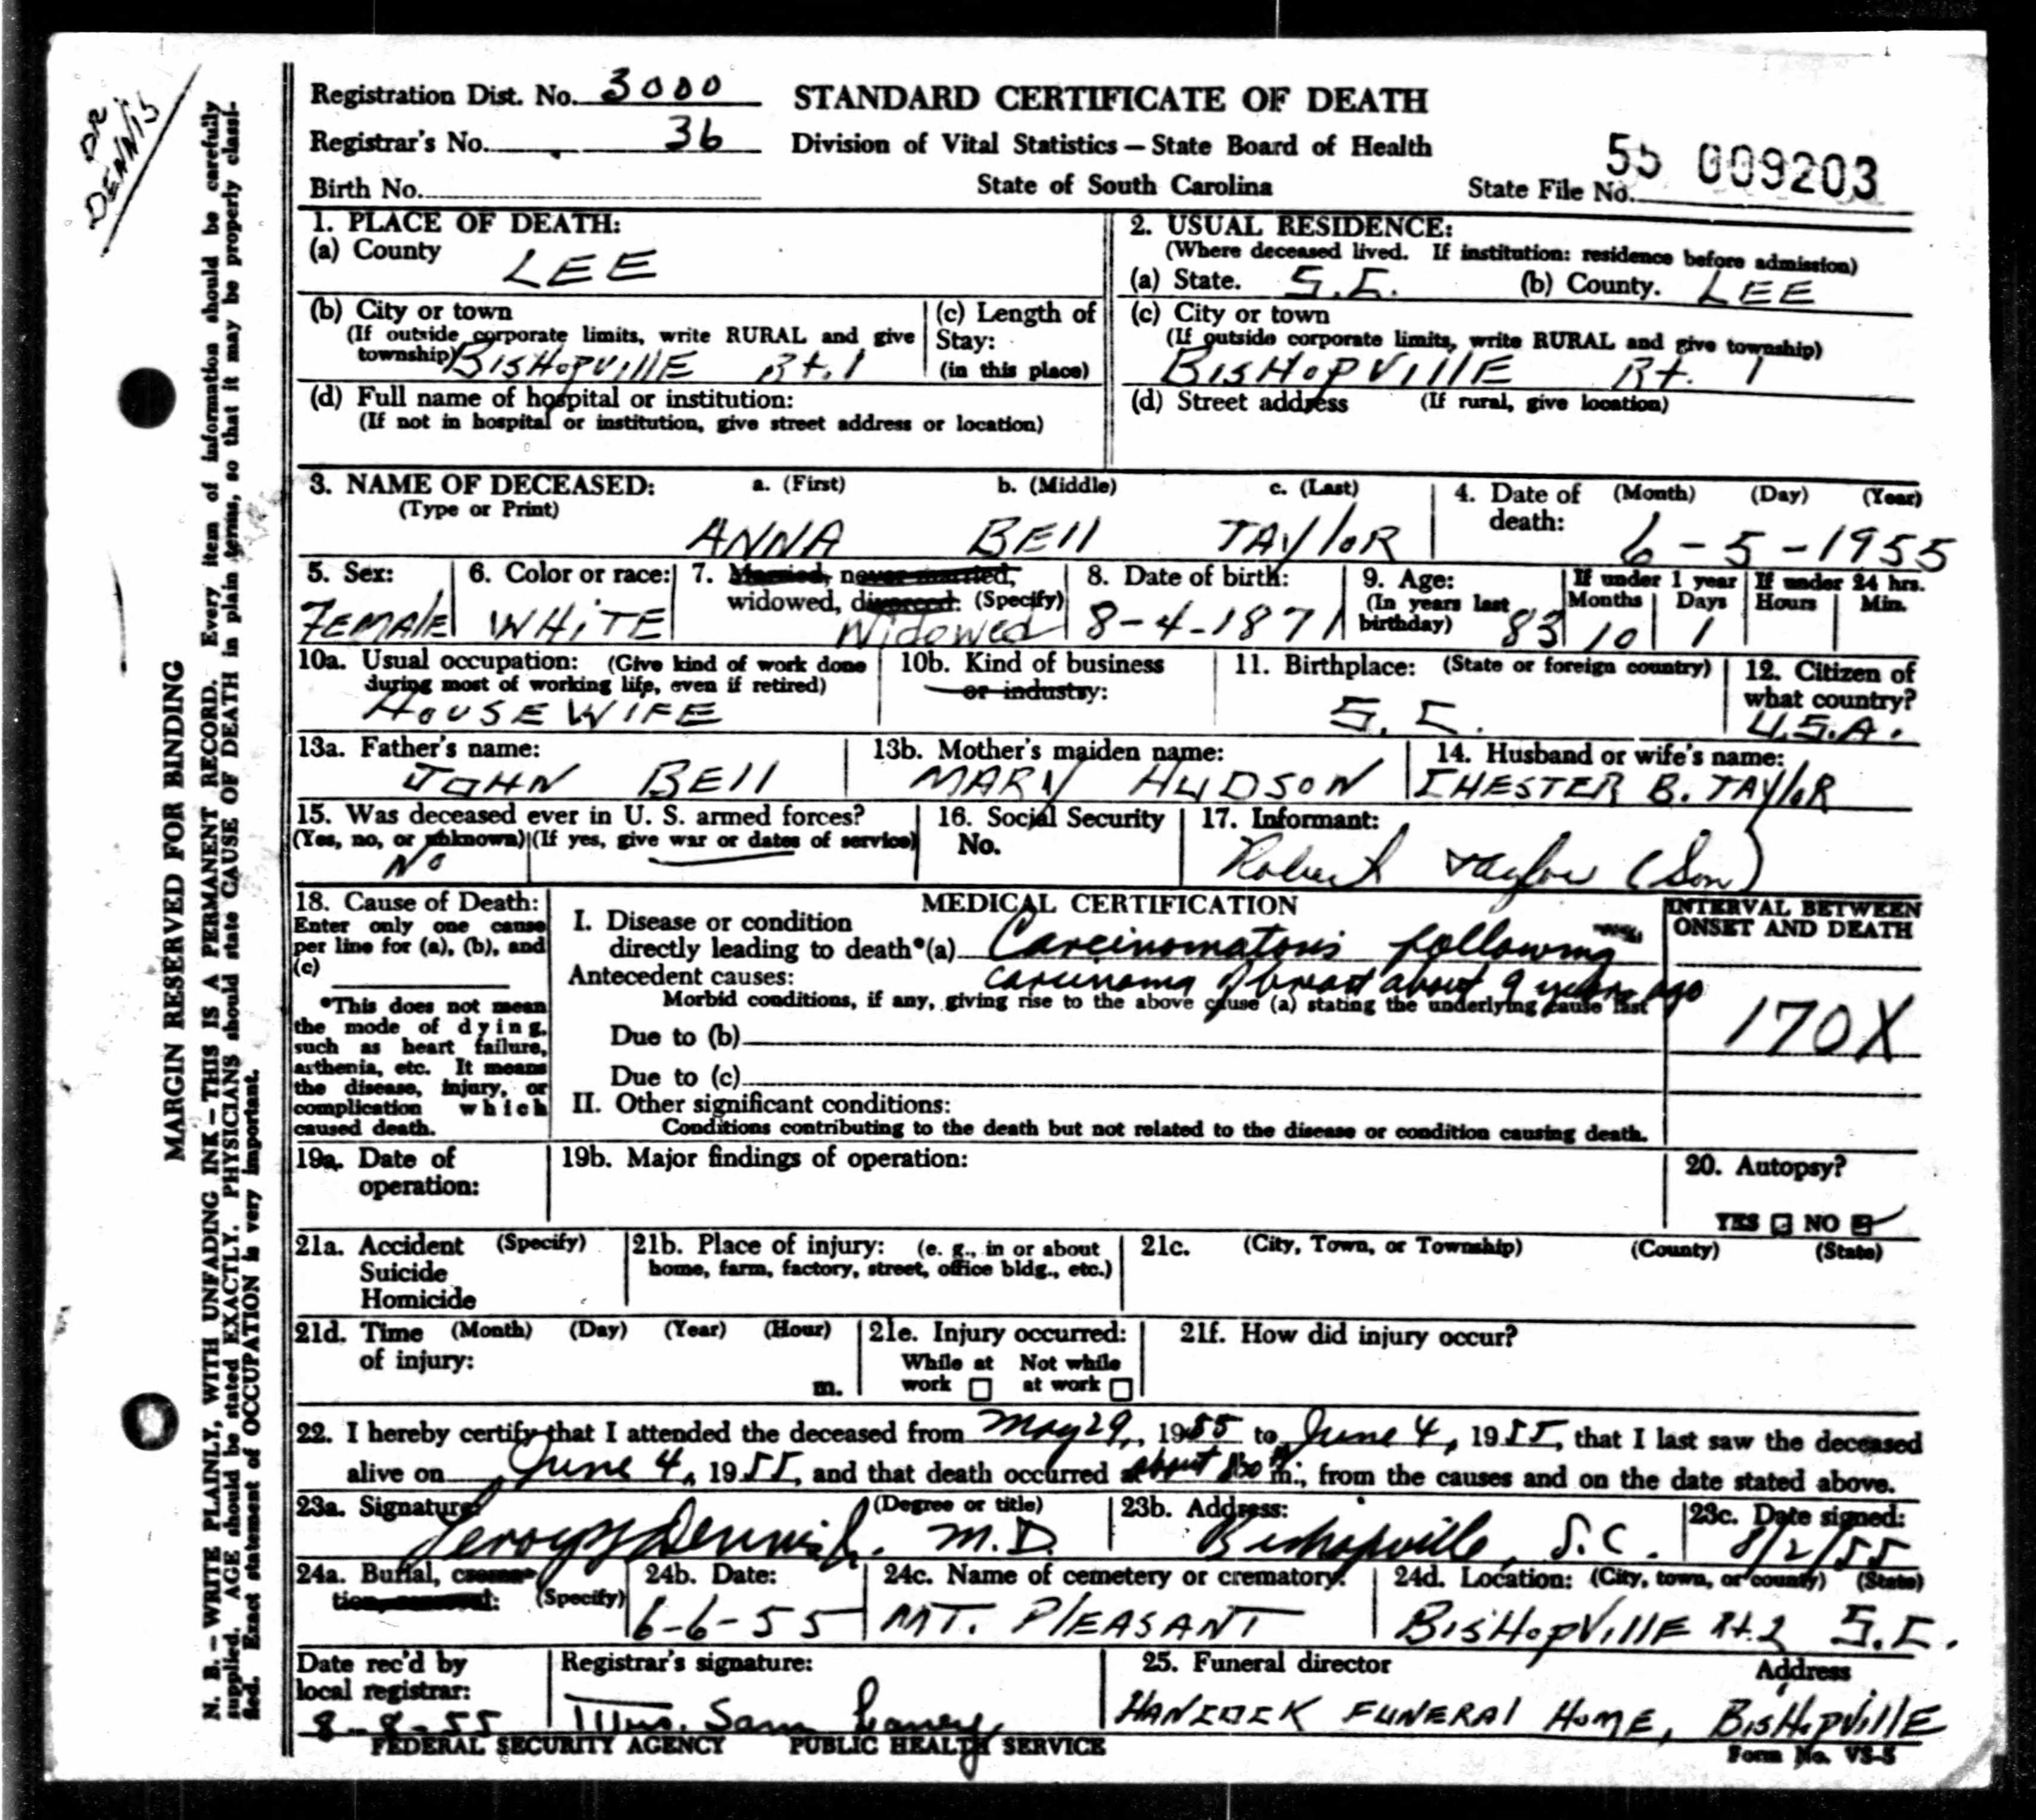 DR
DENNIS
MARGIN RESERVED FOR BINDING
N. B.—WRITE PLAINLY, WITH UNFADING INK—THIS IS A PERMANENT RECORD. Every item of information should be carefully
supplied. AGE should be stated EXACTLY. PHYSICIANS should state CAUSE OF DEATH in plain terms, so that it may be properly classi-
fied. Exact statement of OCCUPATION is very important.
Registration Dist. No. 3000
Registrar's No. 36
Birth No.
STANDARD CERTIFICATE OF DEATH
Division of Vital Statistics — State Board of Health
State of South Carolina
State File No. 55 009203
1. PLACE OF DEATH:
(a) County LEE
(b) City or town
(If outside corporate limits, write RURAL and give
township) BISHOPVIllE Rt. 1
(c) Length of
Stay:
(in this place)
(d) Full name of hospital or institution:
(If not in hospital or institution, give street address or location)
2. USUAL RESIDENCE:
(Where deceased lived. If institution: residence before admission)
(a) State. S.C. (b) County. LEE
(c) City or town
(If outside corporate limits, write RURAL and give township)
BISHOPVIllE Rt. 1
(d) Street address (If rural, give location)
3. NAME OF DECEASED: a. (First) b. (Middle) c. (Last)
(Type or Print)
ANNA BEll TAYloR
4. Date of (Month) (Day) (Year)
death:
6-5-1955
5. Sex:
FEMAlE
6. Color or race:
WHITE
7. Married, never married,
widowed, divorced: (Specify)
Widowed
8. Date of birth:
8-4-1871
9. Age:
(In years last
birthday) 83
If under 1 year
Months Days
10 1
If under 24 hrs.
Hours Min.
10a. Usual occupation: (Give kind of work done
during most of working life, even if retired)
HOUSEWIFE
10b. Kind of business
or industry:
11. Birthplace: (State or foreign country)
S.C.
12. Citizen of
what country?
U.S.A.
13a. Father's name:
JOHN BEll
13b. Mother's maiden name:
MARY HUDSON
14. Husband or wife's name:
CHESTER B. TAYloR
15. Was deceased ever in U. S. armed forces?
(Yes, no, or unknown) (If yes, give war or dates of service)
No
16. Social Security
No.
17. Informant:
Robert Taylor (Son)
18. Cause of Death:
Enter only one cause
per line for (a), (b), and
(c)
*This does not mean
the mode of dying,
such as heart failure,
asthenia, etc. It means
the disease, injury, or
complication which
caused death.
MEDICAL CERTIFICATION
I. Disease or condition
directly leading to death*(a) Carcinomatosis following
Antecedent causes: carcinoma of breast about 9 years ago
Morbid conditions, if any, giving rise to the above cause (a) stating the underlying cause last
Due to (b)
Due to (c)
II. Other significant conditions:
Conditions contributing to the death but not related to the disease or condition causing death.
INTERVAL BETWEEN
ONSET AND DEATH
170X
19a. Date of
operation:
19b. Major findings of operation:
20. Autopsy?
YES NO
21a. Accident (Specify)
Suicide
Homicide
21b. Place of injury: (e. g., in or about
home, farm, factory, street, office bldg., etc.)
21c. (City, Town, or Township) (County) (State)
21d. Time (Month) (Day) (Year) (Hour)
of injury:
m.
21e. Injury occurred:
While at Not while
work at work
21f. How did injury occur?
22. I hereby certify that I attended the deceased from May 29, 1955 to June 4, 1955, that I last saw the deceased
alive on June 4, 1955, and that death occurred about m., from the causes and on the date stated above.
23a. Signature (Degree or title)
Leroy Dennis Jr. M.D.
23b. Address:
Bishopville, S.C.
23c. Date signed:
8/2/55
24a. Burial, crema-
tion, removal: (Specify)
24b. Date:
6-6-55
24c. Name of cemetery or crematory:
MT. PlEASANT
24d. Location: (City, town, or county) (State)
BISHOPVIllE Rt. 2 S.C.
Date rec'd by
local registrar:
8-8-55
Registrar's signature:
Mrs. Sam
25. Funeral director Address
HANCOCK FUNERAl HOME, BISHOPVIllE
FEDERAL SECURITY AGENCY PUBLIC HEALTH SERVICE
Form No. VS-5